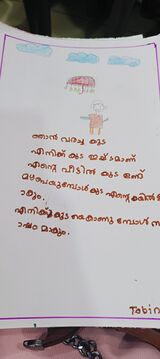 ഞാൻ വരച്ച കുട
എനിക്ക് കുട ഇഷ്ടമാണ്
എന്റെ വീട്ടിൽ കുട ഉണ്ട്
മഴപെയ്യുമ്പോൾ കുട എന്റെ കയിൽ ഉ
ാകും.
എനിക്ക് കുട കൊണ്ടു പോൾ സ
ാഷം മാകും.
Tobin